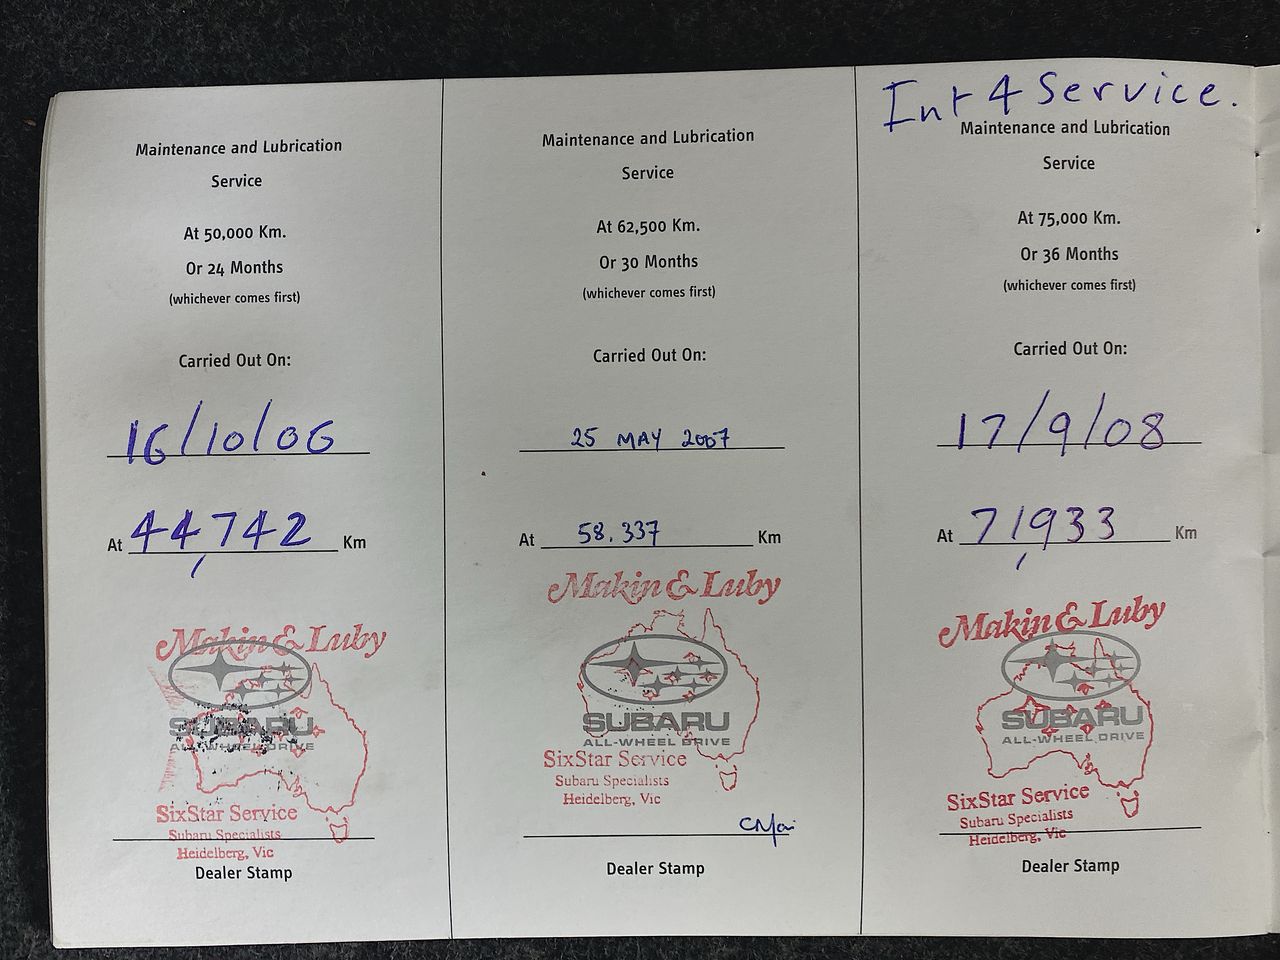 Maintenance and Lubrication
Service
At 50,000 Km.
Or 24 Months
(whichever comes first)
Carried Out On:
16/10/06
At 44,742 Km
Makin & Luby
SUBARU
ALL-WHEEL DRIVE
SixStar Service
Subaru Specialists
Heidelberg, Vic
Dealer Stamp
Maintenance and Lubrication
Service
At 62,500 Km.
Or 30 Months
(whichever comes first)
Carried Out On:
25 MAY 2007
At 58.337 Km
Makin & Luby
SUBARU
ALL-WHEEL DRIVE
SixStar Service
Subaru Specialists
Heidelberg, Vic
Dealer Stamp
Int 4 Service.
Maintenance and Lubrication
Service
At 75,000 Km.
Or 36 Months
(whichever comes first)
Carried Out On:
17/9/08
At 71,933 Km
Makin & Luby
SUBARU
ALL-WHEEL DRIVE
SixStar Service
Subaru Specialists
Heidelberg, Vic
Dealer Stamp